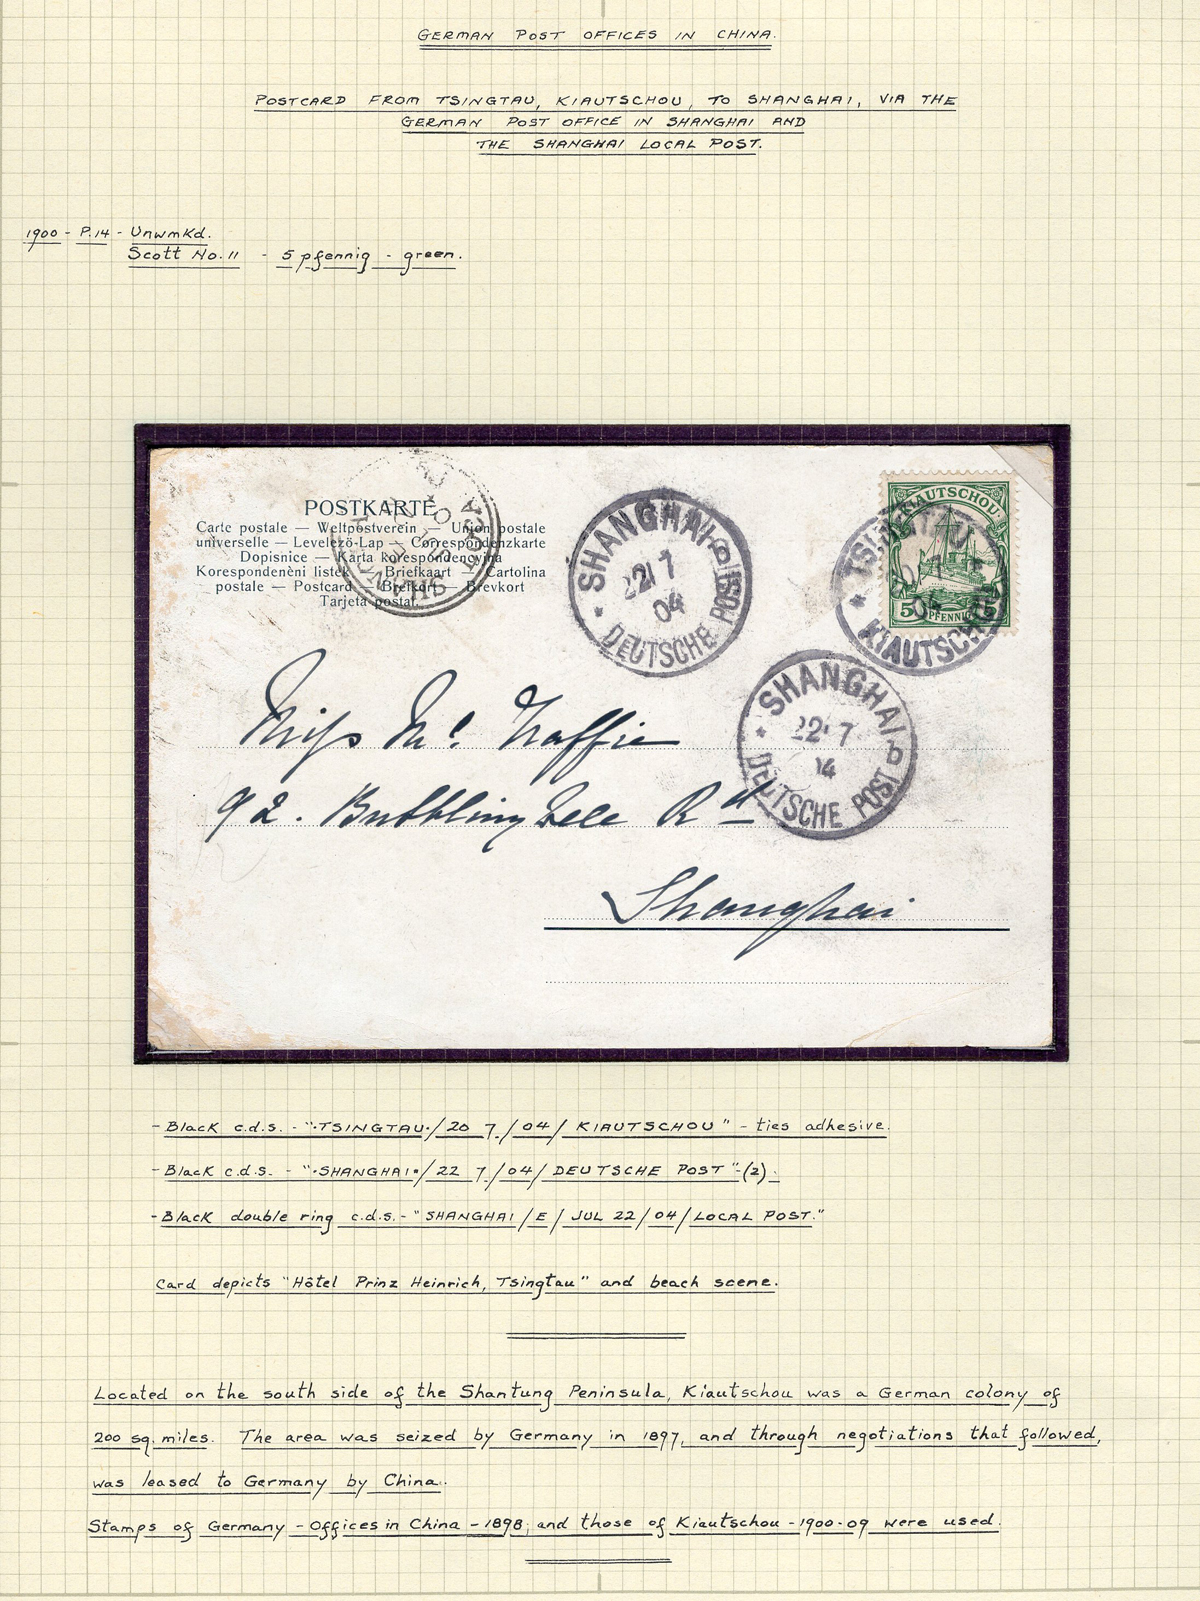 GERMAN POST OFFICES IN CHINA.
POSTCARD FROM TSINGTAU, KIAUTSCHOU, TO SHANGHAI, VIA THE
GERMAN POST OFFICE IN SHANGHAI AND
THE SHANGHAI LOCAL POST.
1900 - P.14 - Unwmkd.
Scott No. 11 - 5 pfennig - green.
POSTKARTE
Carte postale — Weltpostverein — Union postale
universelle — Levelező-Lap — Correspondenzkarte
Dopisnice — Karta korespondencyjna
Korespondenční listek — Briefkaart — Cartolina
postale — Postcard — Brefkort — Brevkort
Tarjeta postal.
SHANGHAI b
22 7
04
DEUTSCHE POST
KIAUTSCHOU
5 PFENNIG 5
TSINGTAU
04
KIAUTSCHOU
SHANGHAI b
22 7
04
DEUTSCHE POST
Miss
92. Bubbling Rd
Shanghai
- Black c.d.s. - "·TSINGTAU·/20 7/04/KIAUTSCHOU" - ties adhesive.
- Black c.d.s. - "·SHANGHAI·/22 7/04/DEUTSCHE POST"-(2).
- Black double ring c.d.s.- "SHANGHAI/E/JUL 22/04/LOCAL POST."
Card depicts "Hôtel Prinz Heinrich, Tsingtau" and beach scene.
Located on the south side of the Shantung Peninsula, Kiautschou was a German colony of
200 sq. miles. The area was seized by Germany in 1897, and through negotiations that followed,
was leased to Germany by China.
Stamps of Germany - Offices in China - 1898, and those of Kiautschou - 1900-09 were used.